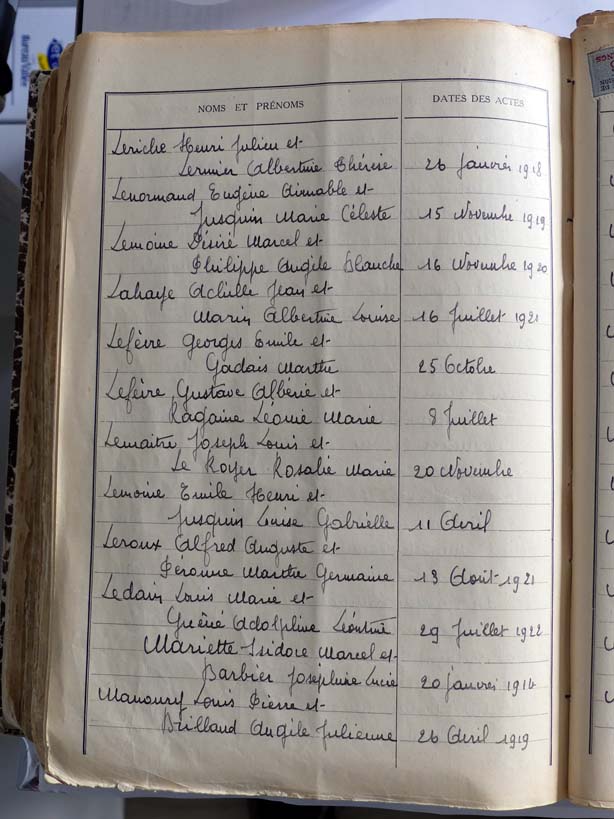 Bureau Vallée
NOMS ET PRÉNOMS DATES DES ACTES
Leriche Henri Julien et
Lermier Albertine Thérèse 26 Janvier 1918
Lenormand Eugène Aimable et
Jusquin Marie Céleste 15 Novembre 1919
Lemoine Désiré Marcel et
Philippe Angèle Blanche 16 Novembre 1920
Lahaye Achille Jean et
Marin Albertine Louise 16 Juillet 1921
Lefèvre Georges Emile et
Gadais Marthe 25 Octobre
Lefèvre Gustave Albéric et
Ragaine Léonie Marie 8 Juillet
Lemaitre Joseph Louis et
Le Royer Rosalie Marie 20 Novembre
Lemoine Emile Henri et
Jusquin Louise Gabrielle 11 Avril
Leroux Alfred Auguste et
Péronne Marthe Germaine 13 Août 1921
Ledain Louis Marie et
Guéné Adolphine Léontine 29 Juillet 1922
Mariette Isidore Marcel et
Barbier Joséphine Lucie 20 Janvier 1914
Manoury Louis Pierre et
Brilland Angèle Julienne 26 Avril 1919